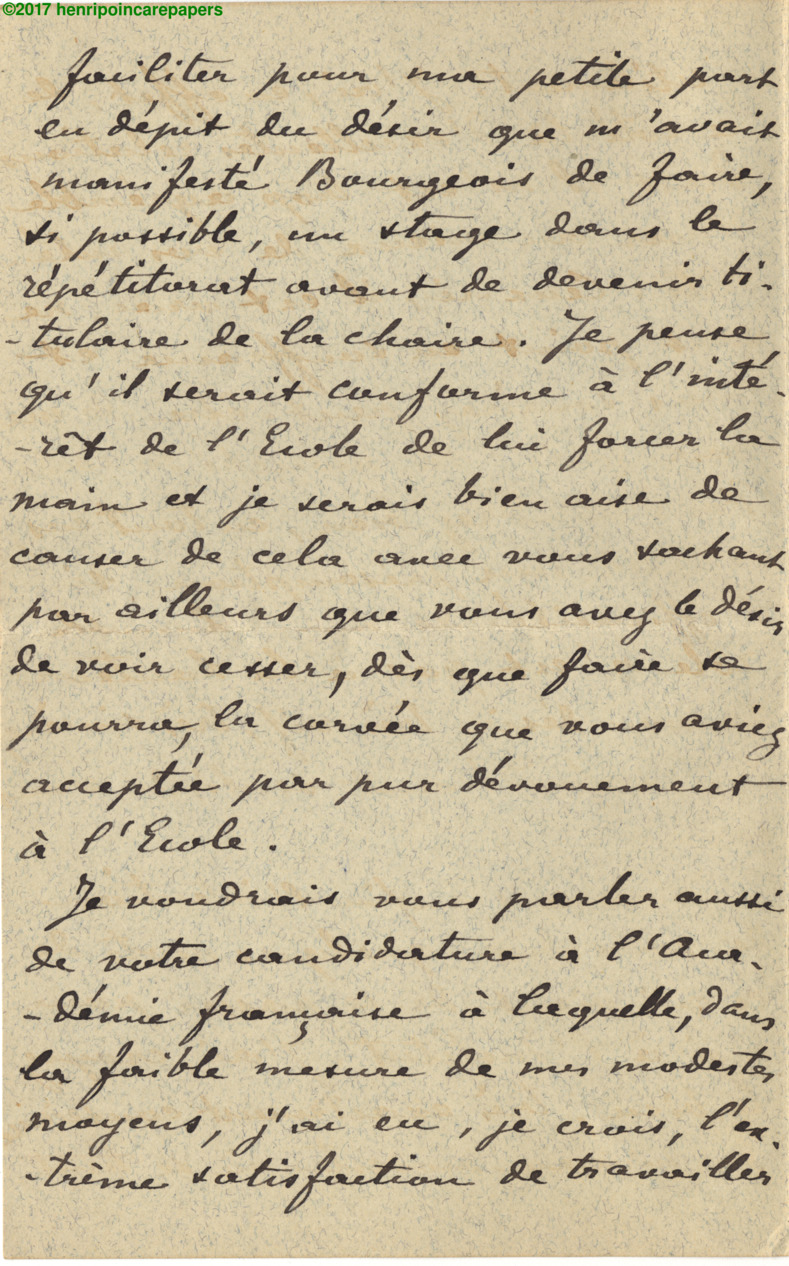 ©2017 henripoincarepapers
faciliter pour ma petite part
en dépit du désir que m'avait
manifesté Bourgeois de faire,
si possible, un stage dans le
répétitorat avant de devenir ti-
-tulaire de la chaire. Je pense
qu'il serait conforme à l'inté-
-rêt de l'Ecole de lui forcer la
main et je serais bien aise de
causer de cela avec vous sachant
par ailleurs que vous avez le désir
de voir cesser, dès que faire se
pourra, la corvée que vous aviez
acceptée par pur dévouement
à l'Ecole.
Je voudrais vous parler aussi
de votre candidature à l'Aca-
-démie française à laquelle, dans
la faible mesure de mes modestes
moyens, j'ai eu, je crois, l'ex-
-trème satisfaction de travailler